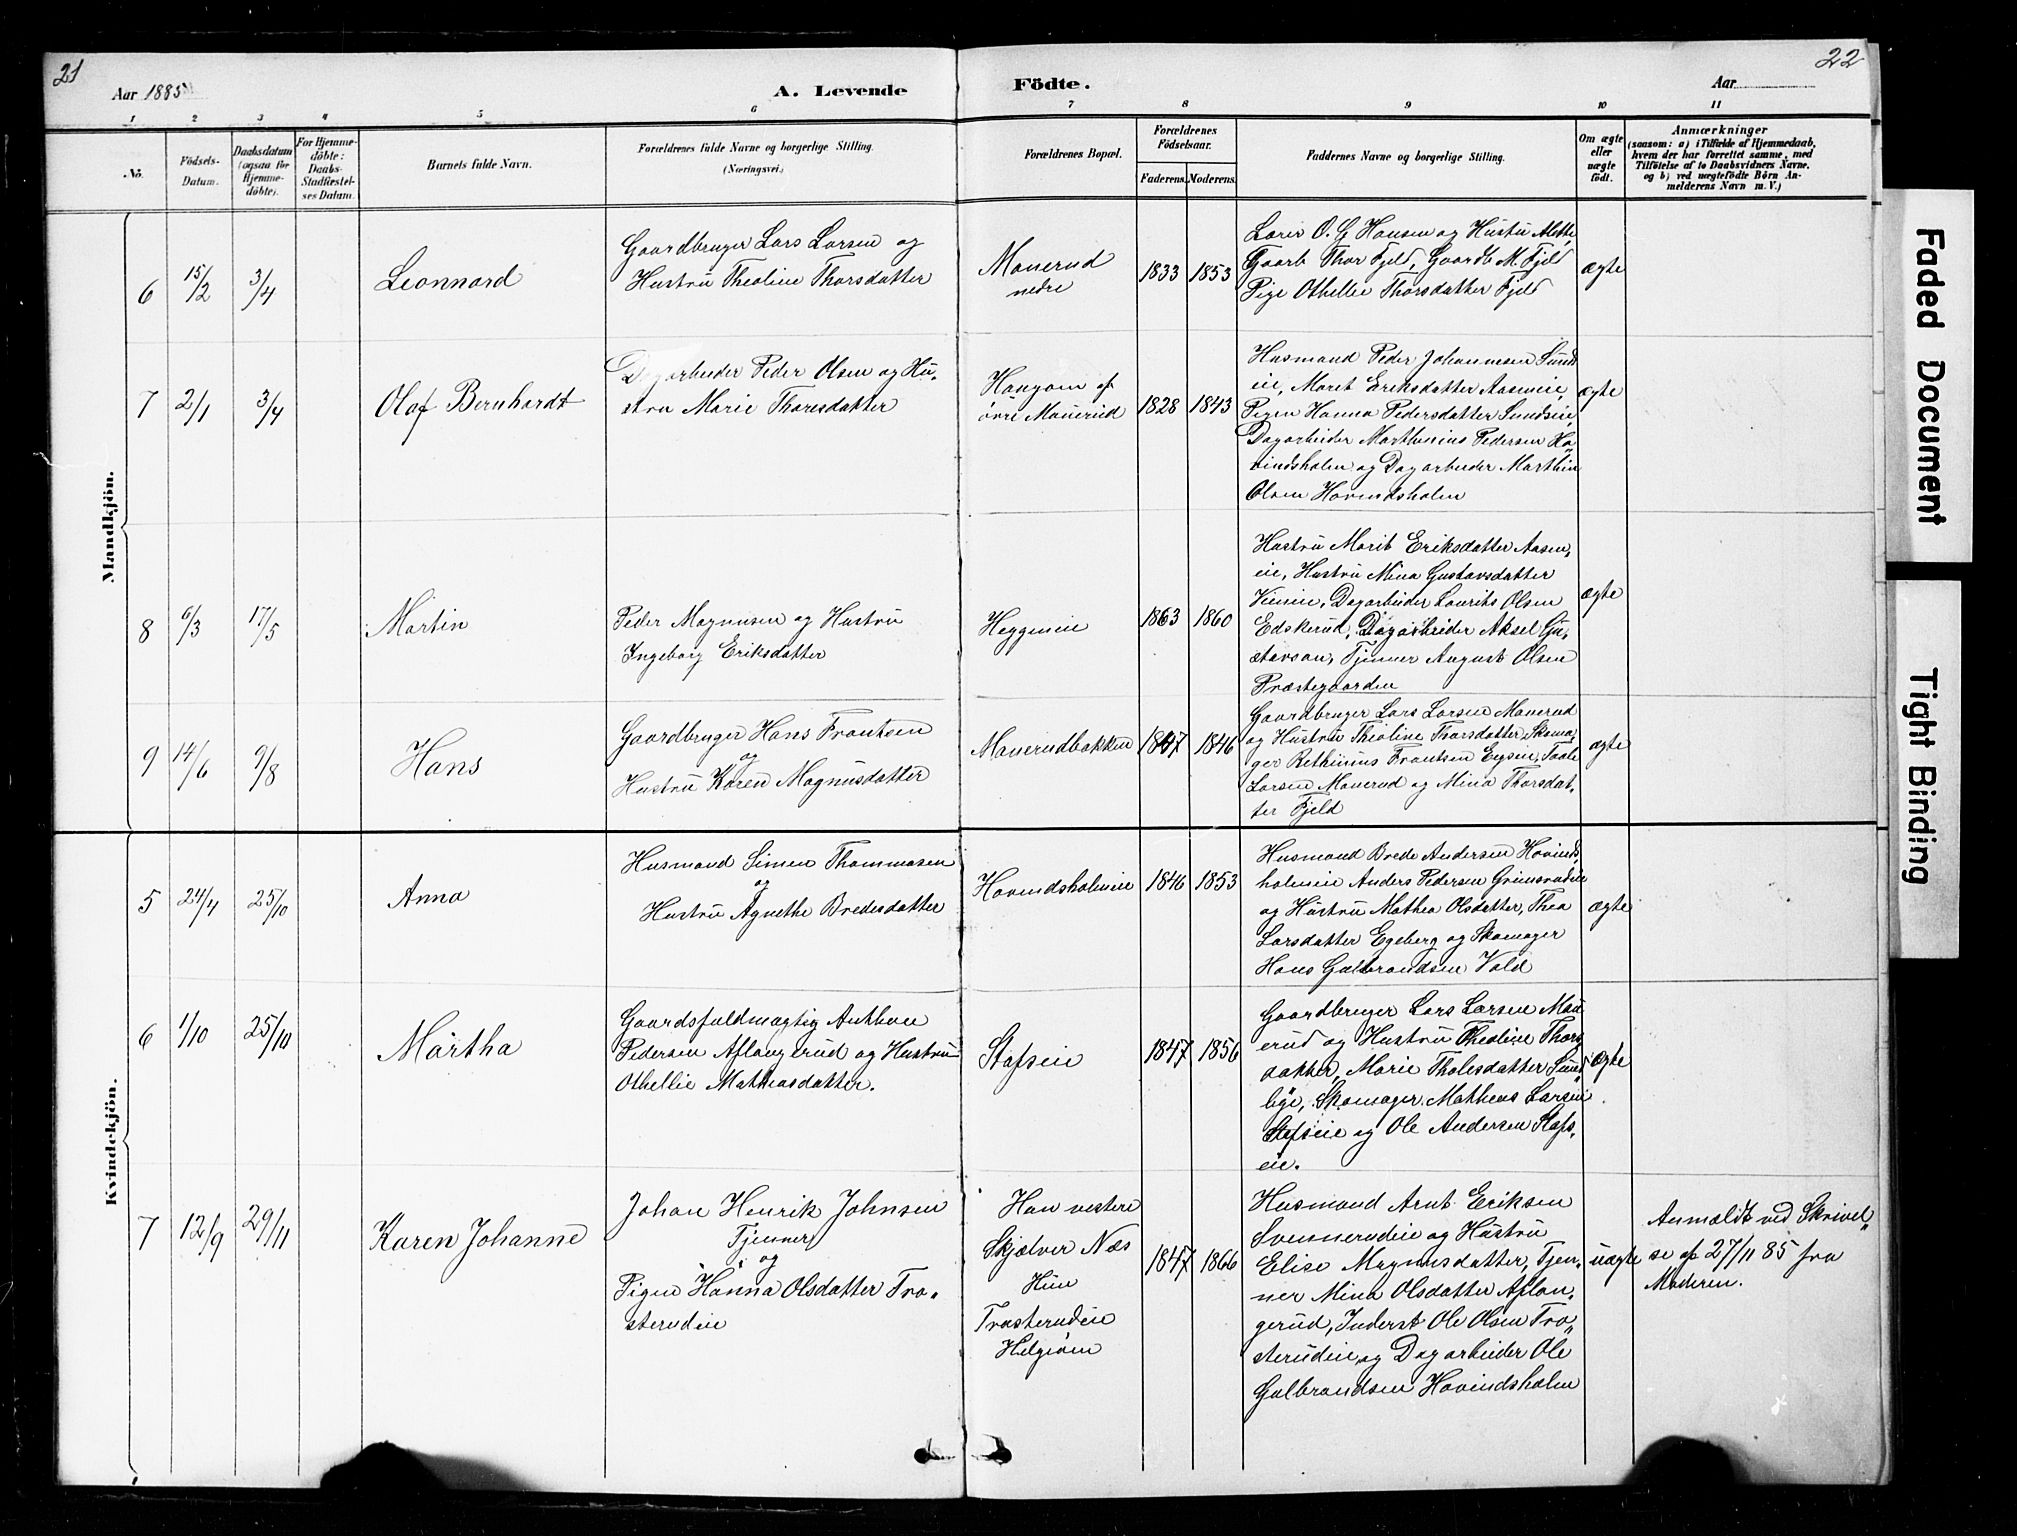 21
22
Aar 1885
A. Levende
Födte.
Aar
1 2 3 4 5 6 7 8 9 10 11
No.
Födsels-
Datum.
Daabsdatum
(ogsaa for
Hjemme-
döbte).
For Hjemme-
döbte:
Daabs-
Stadfæstel-
ses Datum.
Barnets fulde Navn.
Forældrenes fulde Navne og borgerlige Stilling.
(Næringsvei.)
Forældrenes Bopæl.
Forældrenes
Födselsaar.
Faderens. Moderens.
Faddernes Navne og borgerlige Stilling.
Om ægte
eller
uægte
födt.
Anmærkninger
(saasom: a) i Tilfælde af Hjemmedaab,
hvem der har forrettet samme, med
Tilföielse af to Daabsvidners Navne.
og b) ved uægtefödte Börn An-
melderens Navn m. V.)
Mandkjön.
6 15/2 3/4
Leonnard
Gaardbruger Lars Larsen og
Hustru Theoline Thorsdatter
Mauerud
nedre
1833 1853
Lærer O. G Hansen og Hustru Alette,
Gaarb Thor Fjeld, Gaardb M. Fjeld
Pige Othellie Thorsdatter Fjeld
ægte
7 2/1 3/4
Olaf Bernhardt
Dagarbeider Peder Olsen og Hu„
stru Marie Thoresdatter
Haugom af
övre Mauerud
1828 1843
Husmand Peder Johannesen Sunds
eie, Marit Eriksdatter Aaseneie,
Pigen Hanna Pedersdatter Sundseie,
Dagarbeider Marthinius Pedersen Ho„
vindsholm og Dagarbeider Marthin
Olsen Hovindsholm
ægte
8 6/3 17/5
Martin
Peder Magnusen og Hustru
Ingeborg Eriksdatter
Heggneie
1863 1860
Hustru Marit Eriksdatter Aasen„
eie, Hustru Mina Gustavsdatter
Dagarbeider Laurits Olsen
Edskerud, Dagarbeider Aksel Gu„
stavson, Tjener August Olsen
Præstegaarden
ægte
9 14/6 9/8
Hans
Gaardbruger Hans Frantsen
og
Hustru Karen Magnusdatter
Mauerudbakken
1847 1846
Gaardbruger Lars Larsen Mauerud
og Hustru Theoline Thorsdatter, Skoma„
ger Rethinius Frantsen Taale
Larsen Mauerud og Mina Thorsdat„
ter Fjeld
ægte
Kvindekjön.
5 24/4 25/10
Anna
Husmand Simen Thommasen
og
Hustru Agnethe Bredesdatter
Hovindsholmeie
1846 1853
Husmand Brede Andersen Hovinds„
holmeie Anders Pedersen Grimsrudeie
og Hustru Mathea Olsdatter, Thea
Larsdatter Egeberg og Skomager
Hans Gulbrandsen Vold
ægte
6 1/10 25/10
Martha
Gaardsfuldmægtig Anthon
Pedersen Aflangerud og Hustru
Othellie Mathiasdatter.
Stafseie
1847 1856
Gaardbruger Lars Larsen Mau
erud og Hustru Theoline Thors
datter, Marie Tholesdatter Sund„
bye, Skomager Matheus Larsen
Stafseie og Ole Andersen Stafs„
eie.
ægte
7 12/9 29/11
Karen Johanne
Johan Henrik Johnsen
Tjener
og
Pigen Hanna Olsdatter Tro„
sterudeie
Han vestere
Skjelver Næs
Hun
Trosterudeie
Helgöen
1847 1866
Husmand Arnt Eriksen
Svennerudeie og Hustru
Elise Magnusdatter, Tjen„
ner Mina Olsdatter Aflan„
gerud, Inderst Ole Olsen Tro„
sterudeie og Dagarbeider Ole
Gulbrandsen Hovindsholm
uægte
Anmeldt ved Skrivel„
se af 27/11 85 fra
Moderen.
Faded Document
Tight Binding